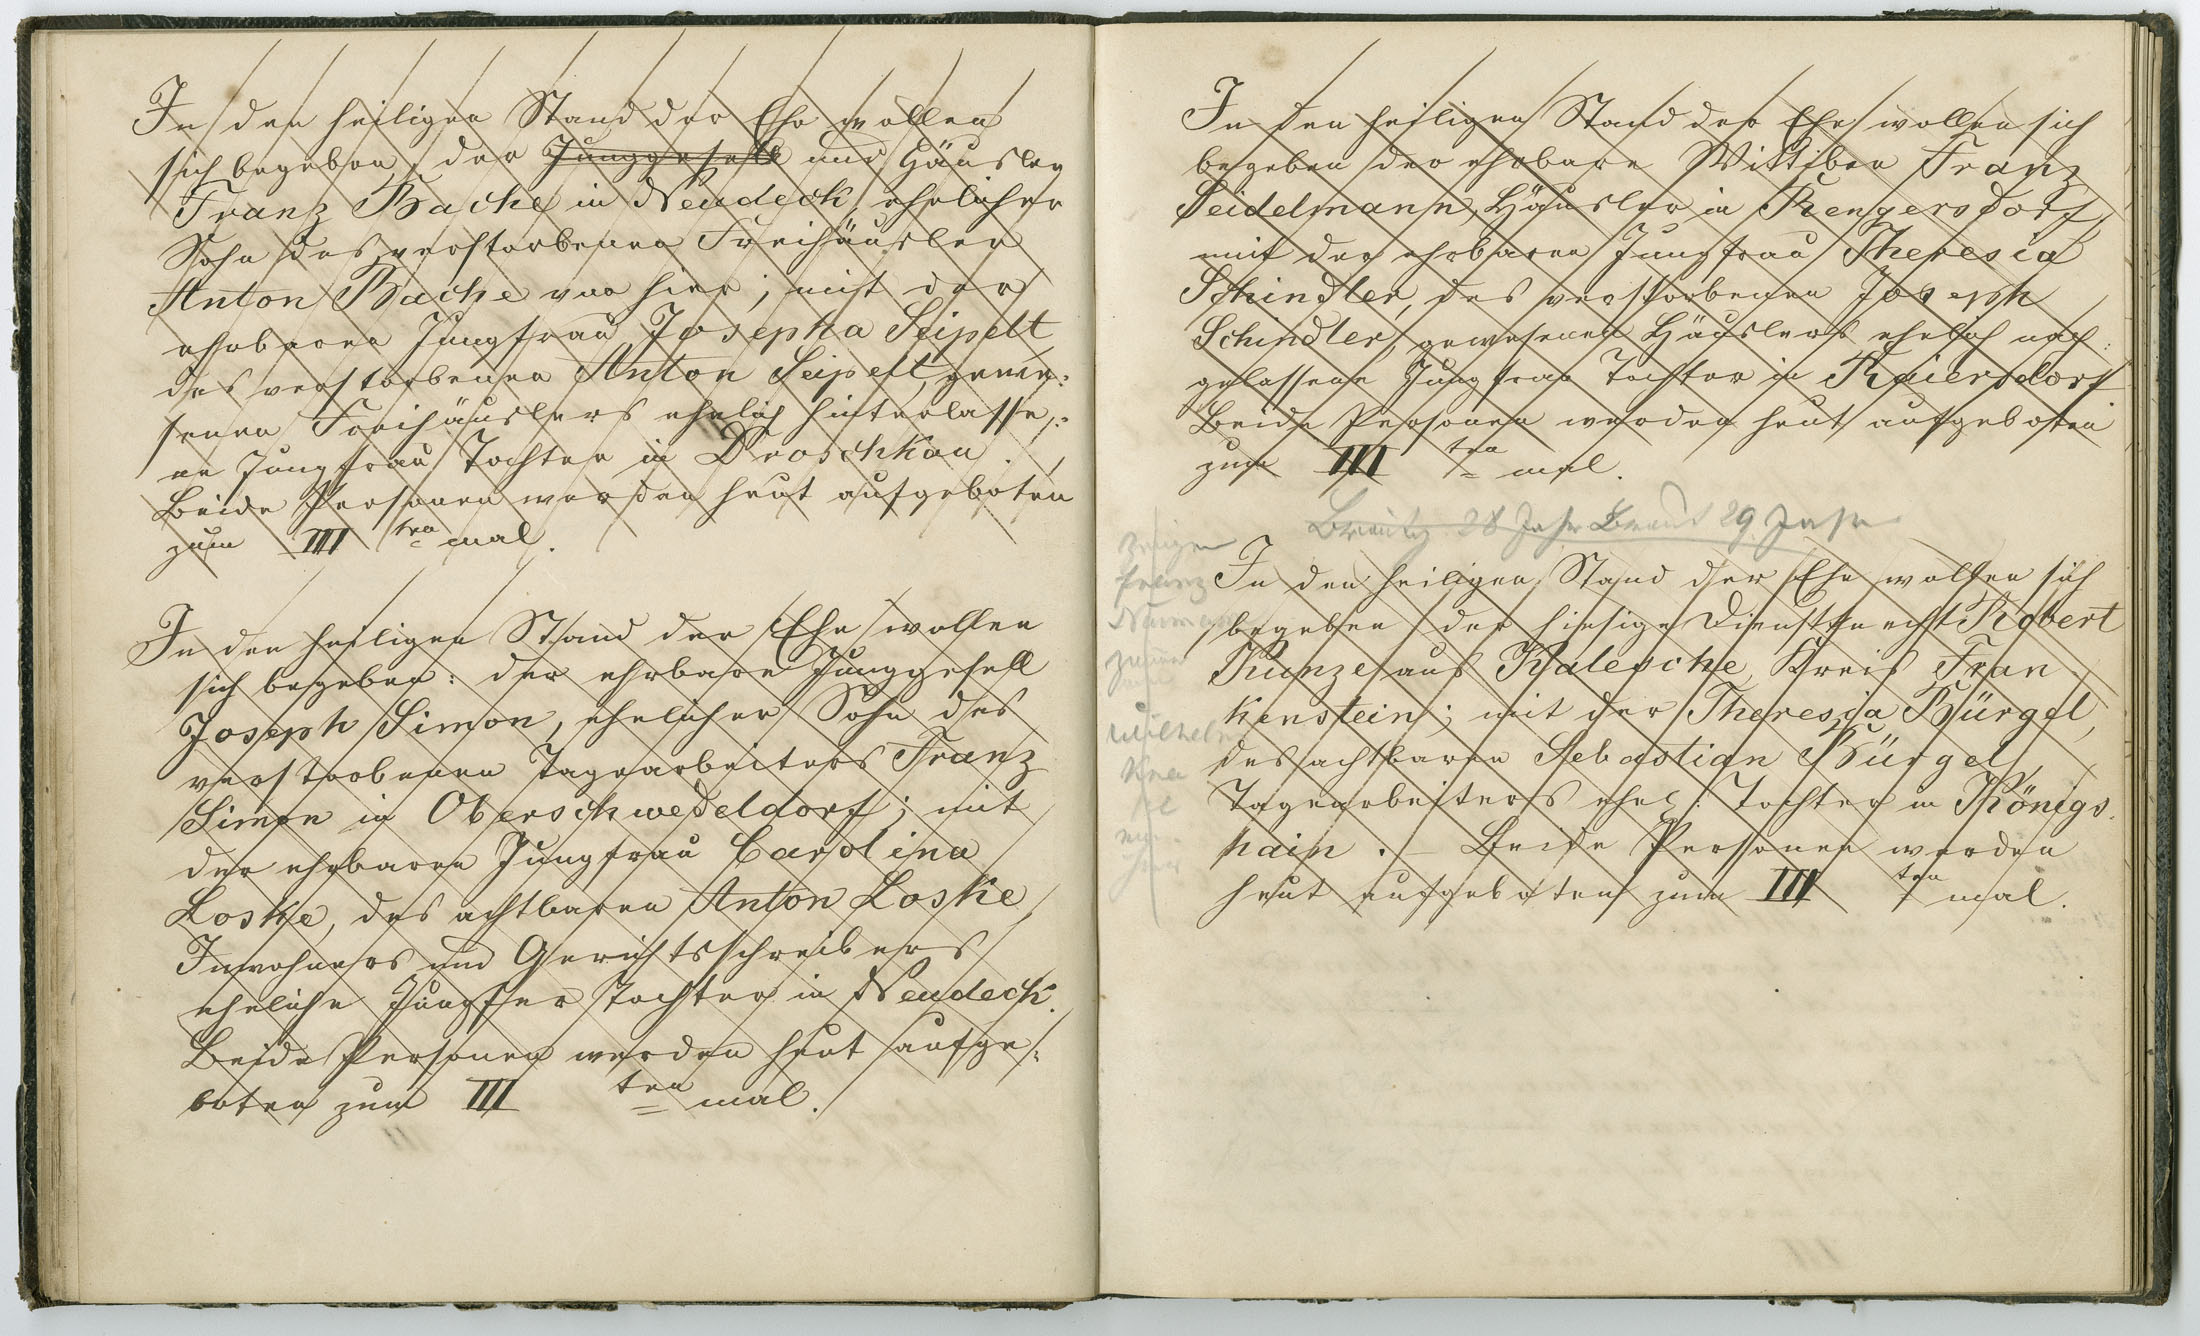 In den heiligen Stand der Ehe wollen
sich begeben, der Junggesell und Häusler
Franz Bache in Neudeck, ehelicher
Sohn des verstorbenen Freihäusler
Anton Bache von hier; mit der
ehrbaren Jungfrau Josepha Seipelt
des verstorbenen Anton Seipelt, gewe:
senen Freihäuslers ehelich hinterlasse:
ne Jungfrau Tochter in Droschkau.
Beide Personen werden heut aufgeboten
zum III ten mal.
In den heiligen Stand der Ehe wollen
sich begeben: der ehrbare Junggesell
Joseph Simon, ehelicher Sohn des
verstorbenen Tagearbeiters Franz
Simon in Oberschwedeldorf; mit
der ehrbaren Jungfrau Carolina
Loske, des achtbaren Anton Loske
Inwohners und Gerichtsschreibers
eheliche Jungfer Tochter in Neudeck.
Beide Personen werden heut aufge:
boten zum III ten mal.
In den heiligen Stand der Ehe wollen sich
begeben der ehrbare Wittiber Franz
Seidelmann, Häusler in Rengersdorf,
mit der ehrbaren Jungfrau Theresia
Schindler, des verstorbenen Joseph
Schindler, gewesenen Häuslers ehelich nach:
gelassene Jungfrau Tochter in Raiersdorf
Beide Personen werden heut aufgeboten
zum III ten mal.
Bräutg. 28 Jahr Braut 29 Jahr
Zeugen
Franz
Wilhelm
In den heiligen Stand der Ehe wollen sich
begeben der hiesige Dienstknecht Robert
Kunze aus Kalesche, Kreis Fran
kenstein; mit der Theresia Bürgel,
des achtbaren Sebastian Bürgel,
Tagearbeiters ehel: Tochter in Königs.
hain. – Beide Personen werden
heut aufgeboten zum III ten mal.